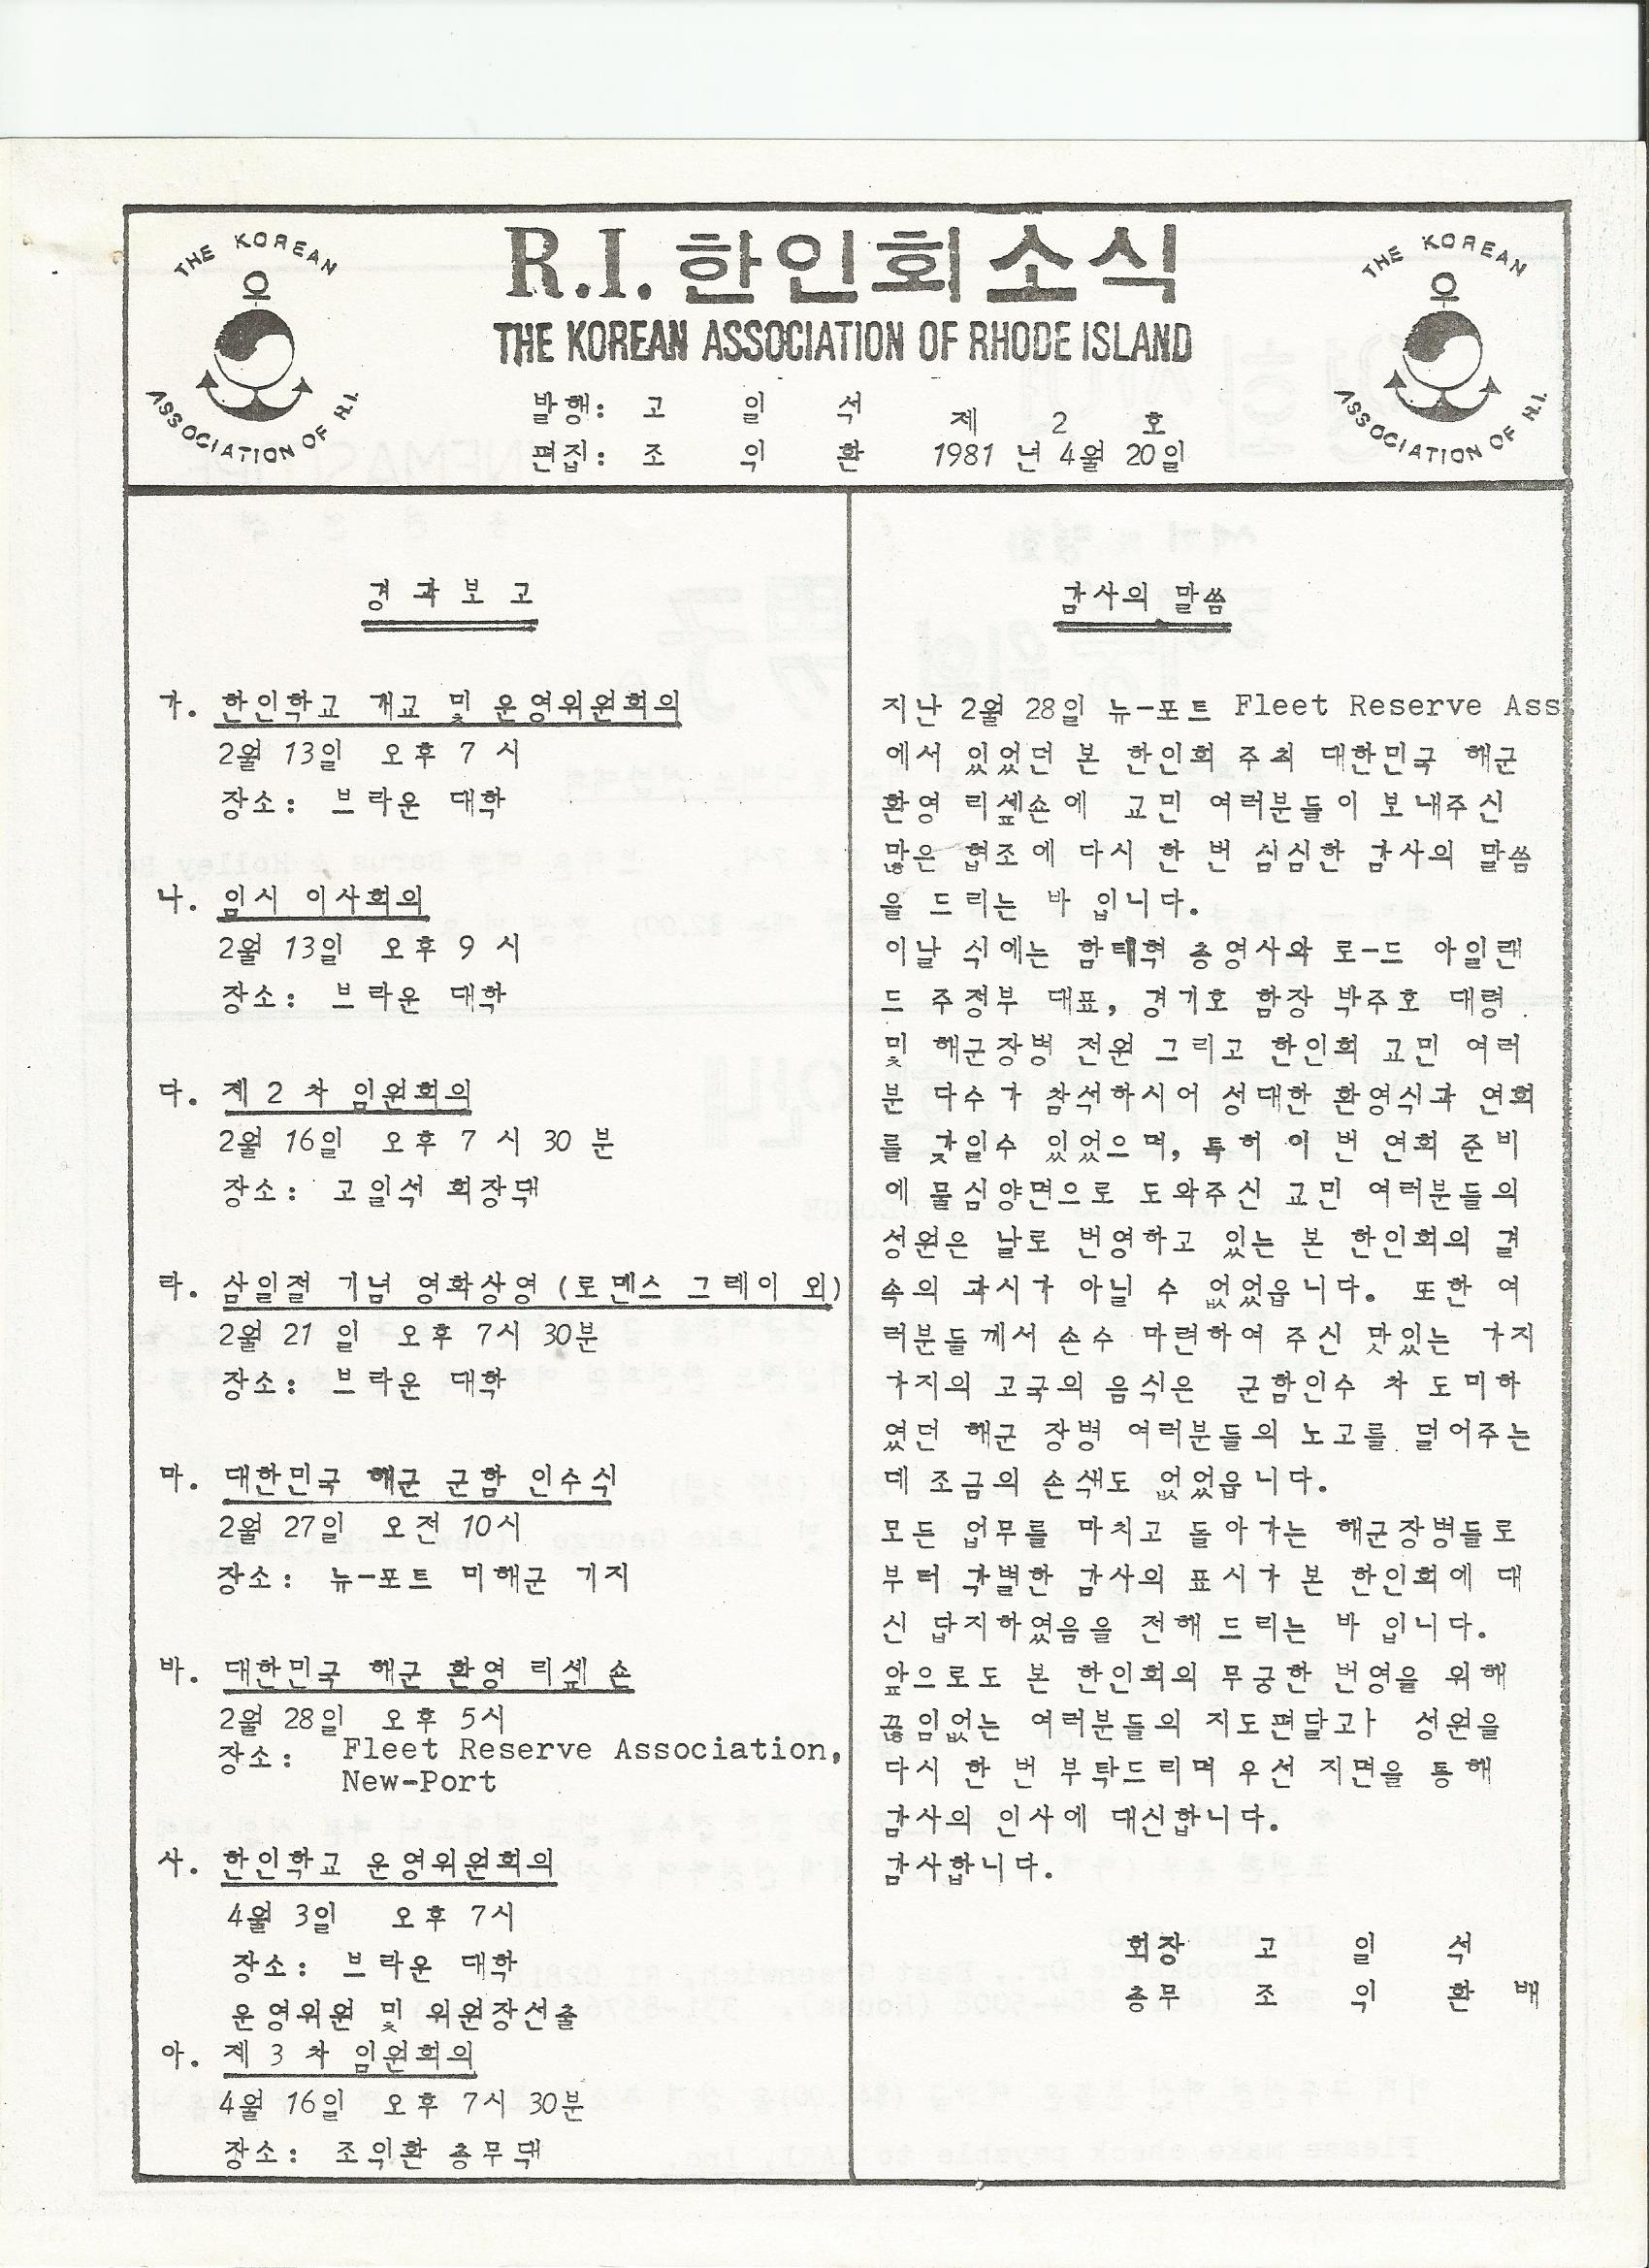 THE KOREAN ASSOCIATION OF R.I.
R.I. 한인회소식
THE KOREAN ASSOCIATION OF RHODE ISLAND
발행: 고 일 석
편집: 조 익 환
제 2 호
1981 년 4월 20일
THE KOREAN ASSOCIATION OF R.I.
경 과 보 고
가. 한인학교 개교 및 운영위원회의
2월 13일 오후 7 시
장소: 브라운 대학
나. 임시 이사회의
2월 13일 오후 9 시
장소: 브라운 대학
다. 제 2 차 임원회의
2월 16일 오후 7 시 30 분
장소: 고일석 회장댁
라. 삼일절 기념 영화상영 (로멘스 그레이 외)
2월 21 일 오후 7시 30분
장소: 브라운 대학
마. 대한민국 해군 군함 인수식
2월 27일 오전 10시
장소: 뉴-포트 미해군 기지
바. 대한민국 해군 환영 리셒숀
2월 28일 오후 5시
장소: Fleet Reserve Association,
New-Port
사. 한인학교 운영위원회의
4월 3일 오후 7시
장소: 브라운 대학
운영위원 및 위원장선출
아. 제 3 차 임원회의
4월 16일 오후 7시 30분
장소: 조익환 총무댁
감사의 말씀
지난 2월 28일 뉴-포트 Fleet Reserve Ass.
에서 있었던 본 한인회 주최 대한민국 해군
환영 리셒숀에 교민 여러분들이 보내주신
많은 협조에 다시 한 번 심심한 감사의 말씀
을 드리는 바 입니다.
이날 식에는 함태혁 총영사와 로-드 아일랜
드 주정부 대표, 경기호 함장 박주호 대령
및 해군장병 전원 그리고 한인회 교민 여러
분 다수가 참석하시어 성대한 환영식과 연회
를 갖일수 있었으며, 특히 이 번 연회 준비
에 물심양면으로 도와주신 교민 여러분들의
성원은 날로 번영하고 있는 본 한인회의 결
속의 과시가 아닐 수 없었읍니다. 또한 여
러분들께서 손수 마련하여 주신 맛있는 가지
가지의 고국의 음식은 군함인수 차 도미하
였던 해군 장병 여러분들의 노고를 덜어주는
데 조금의 손색도 없었읍니다.
모든 업무를 마치고 돌아가는 해군장병들로
부터 각별한 감사의 표시가 본 한인회에 대
신 답지하였음을 전해 드리는 바 입니다.
앞으로도 본 한인회의 무궁한 번영을 위해
끊임없는 여러분들의 지도편달과 성원을
다시 한 번 부탁드리며 우선 지면을 통해
감사의 인사에 대신합니다.
감사합니다.
회장 고 일 석
총무 조 익 환 배